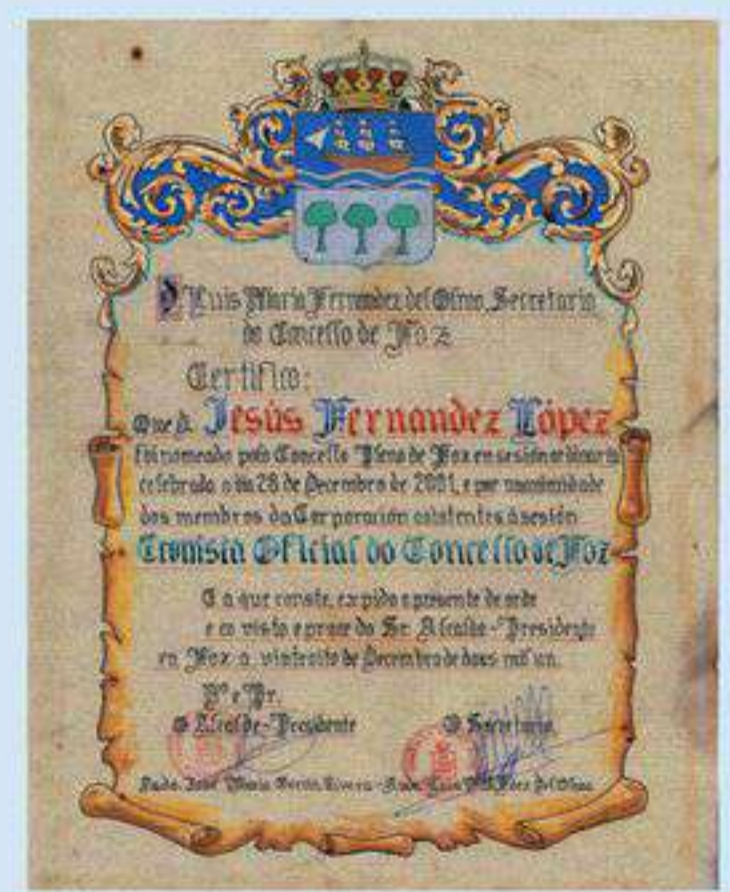 D. Luis Maria Fernandez del Olmo, Secretario
do Concello de Foz
Certifico:
Que D. Jesús Fernandez López
foi nomeado polo Concello Pleno de Foz en sesión ordinaria
celebrada o dia 28 de Decembro de 2001, e por unanimidade
dos membros da Corporación asistentes á sesión
Cronista Oficial do Concello de Foz
E a que conste, expido o presente de orde
e co visto e prace do Sr. Alcalde-Presidente
en Foz a vinteoito de Decembro de dous mil un.
Vº e Pr.
O Alcalde-Presidente O Secretario
Fdo. Jose Maria Rivera - Fdo. Luis Mª Fdez del Olmo